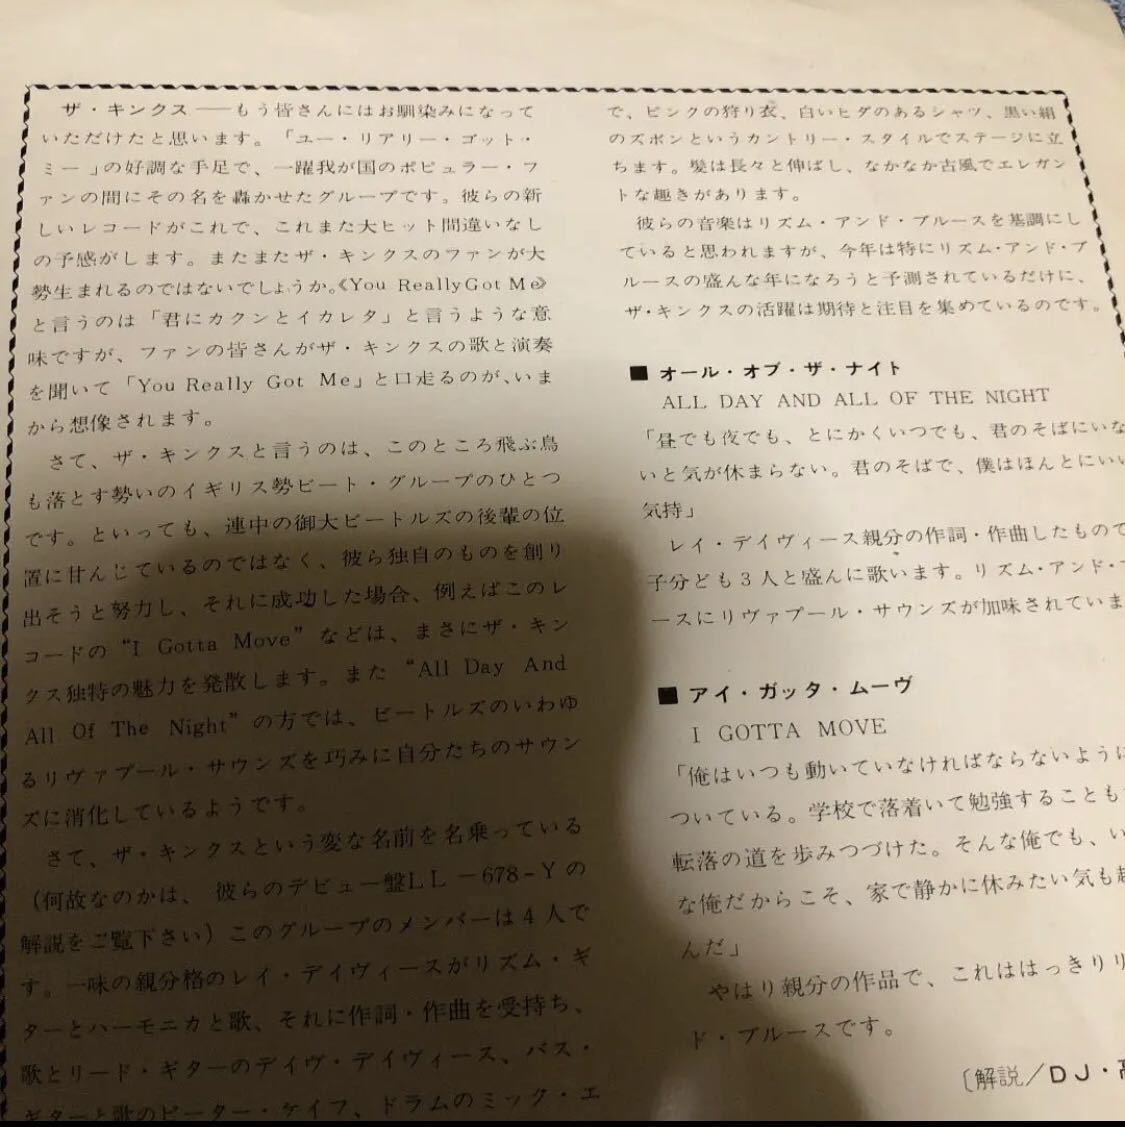 ザ・キンクス――もう皆さんにはお馴染みになって
いただけたと思います。「ユー・リアリー・ゴット・
ミー」の好調な手足で、一躍我が国のポピュラー・フ
ァンの間にその名を轟かせたグループです。彼らの新
しいレコードがこれで、これまた大ヒット間違いなし
の予感がします。またまたザ・キンクスのファンが大
勢生まれるのではないでしょうか。《You Really Got Me》
と言うのは「君にカクンとイカレタ」と言うような意
味ですが、ファンの皆さんがザ・キンクスの歌と演奏
を聞いて「You Really Got Me」と口走るのが、いま
から想像されます。
さて、ザ・キンクスと言うのは、このところ飛ぶ鳥
も落とす勢いのイギリス勢ビート・グループのひとつ
です。といっても、連中の御大ビートルズの後輩の位
置に甘んじているのではなく、彼ら独自のものを創り
出そうと努力し、それに成功した場合、例えばこのレ
コードの“I Gotta Move”などは、まさにザ・キン
クス独特の魅力を発散します。また“All Day And
All Of The Night”の方では、ビートルズのいわゆ
るリヴァプール・サウンズを巧みに自分たちのサウン
ズに消化しているようです。
さて、ザ・キンクスという変な名前を名乗っている
(何故なのかは、彼らのデビュー盤LL－678-Yの
解説をご覧下さい)このグループのメンバーは4人で
す。一味の親分格のレイ・デイヴィースがリズム・ギ
ターとハーモニカと歌、それに作詞・作曲を受持ち、
歌とリード・ギターのデイヴ・デイヴィース、バス・
ギターと歌のピーター・ケイフ、ドラムのミック・エ
で、ピンクの狩り衣、白いヒダのあるシャツ、黒い絹
のズボンというカントリー・スタイルでステージに立
ちます。髪は長々と伸ばし、なかなか古風でエレガン
トな趣きがあります。
彼らの音楽はリズム・アンド・ブルースを基調にし
ていると思われますが、今年は特にリズム・アンド・ブ
ルースの盛んな年になろうと予測されているだけに、
ザ・キンクスの活躍は期待と注目を集めているのです。
■ オール・オブ・ザ・ナイト
ALL DAY AND ALL OF THE NIGHT
「昼でも夜でも、とにかくいつでも、君のそばにいな
いと気が休まらない。君のそばで、僕はほんとにいい
気持」
レイ・デイヴィース親分の作詞・作曲したもので
子分ども3人と盛んに歌います。リズム・アンド・
ースにリヴァプール・サウンズが加味されていま
■ アイ・ガッタ・ムーヴ
I GOTTA MOVE
「俺はいつも動いていなければならないように
ついている。学校で落着いて勉強することも
転落の道を歩みつづけた。そんな俺でも、い
な俺だからこそ、家で静かに休みたい気も
んだ」
やはり親分の作品で、これははっきりリ
ド・ブルースです。
〔解説／DJ・